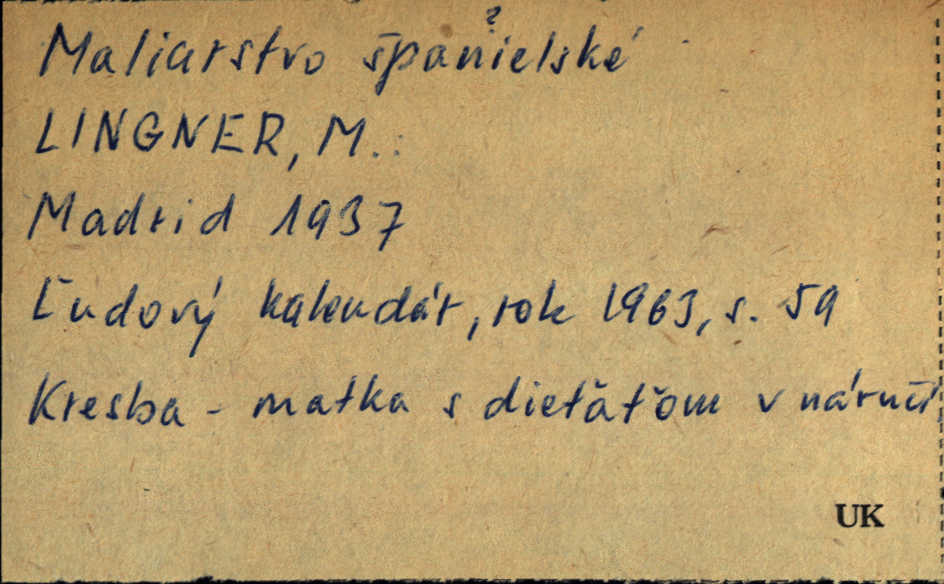 ?
Maliarstvo španielské
LINGNER, M.:
Madrid 1937
Ľudový kalendár, rok 1963, s. 59
Kresba - matka s dieťaťom v náručí
UK